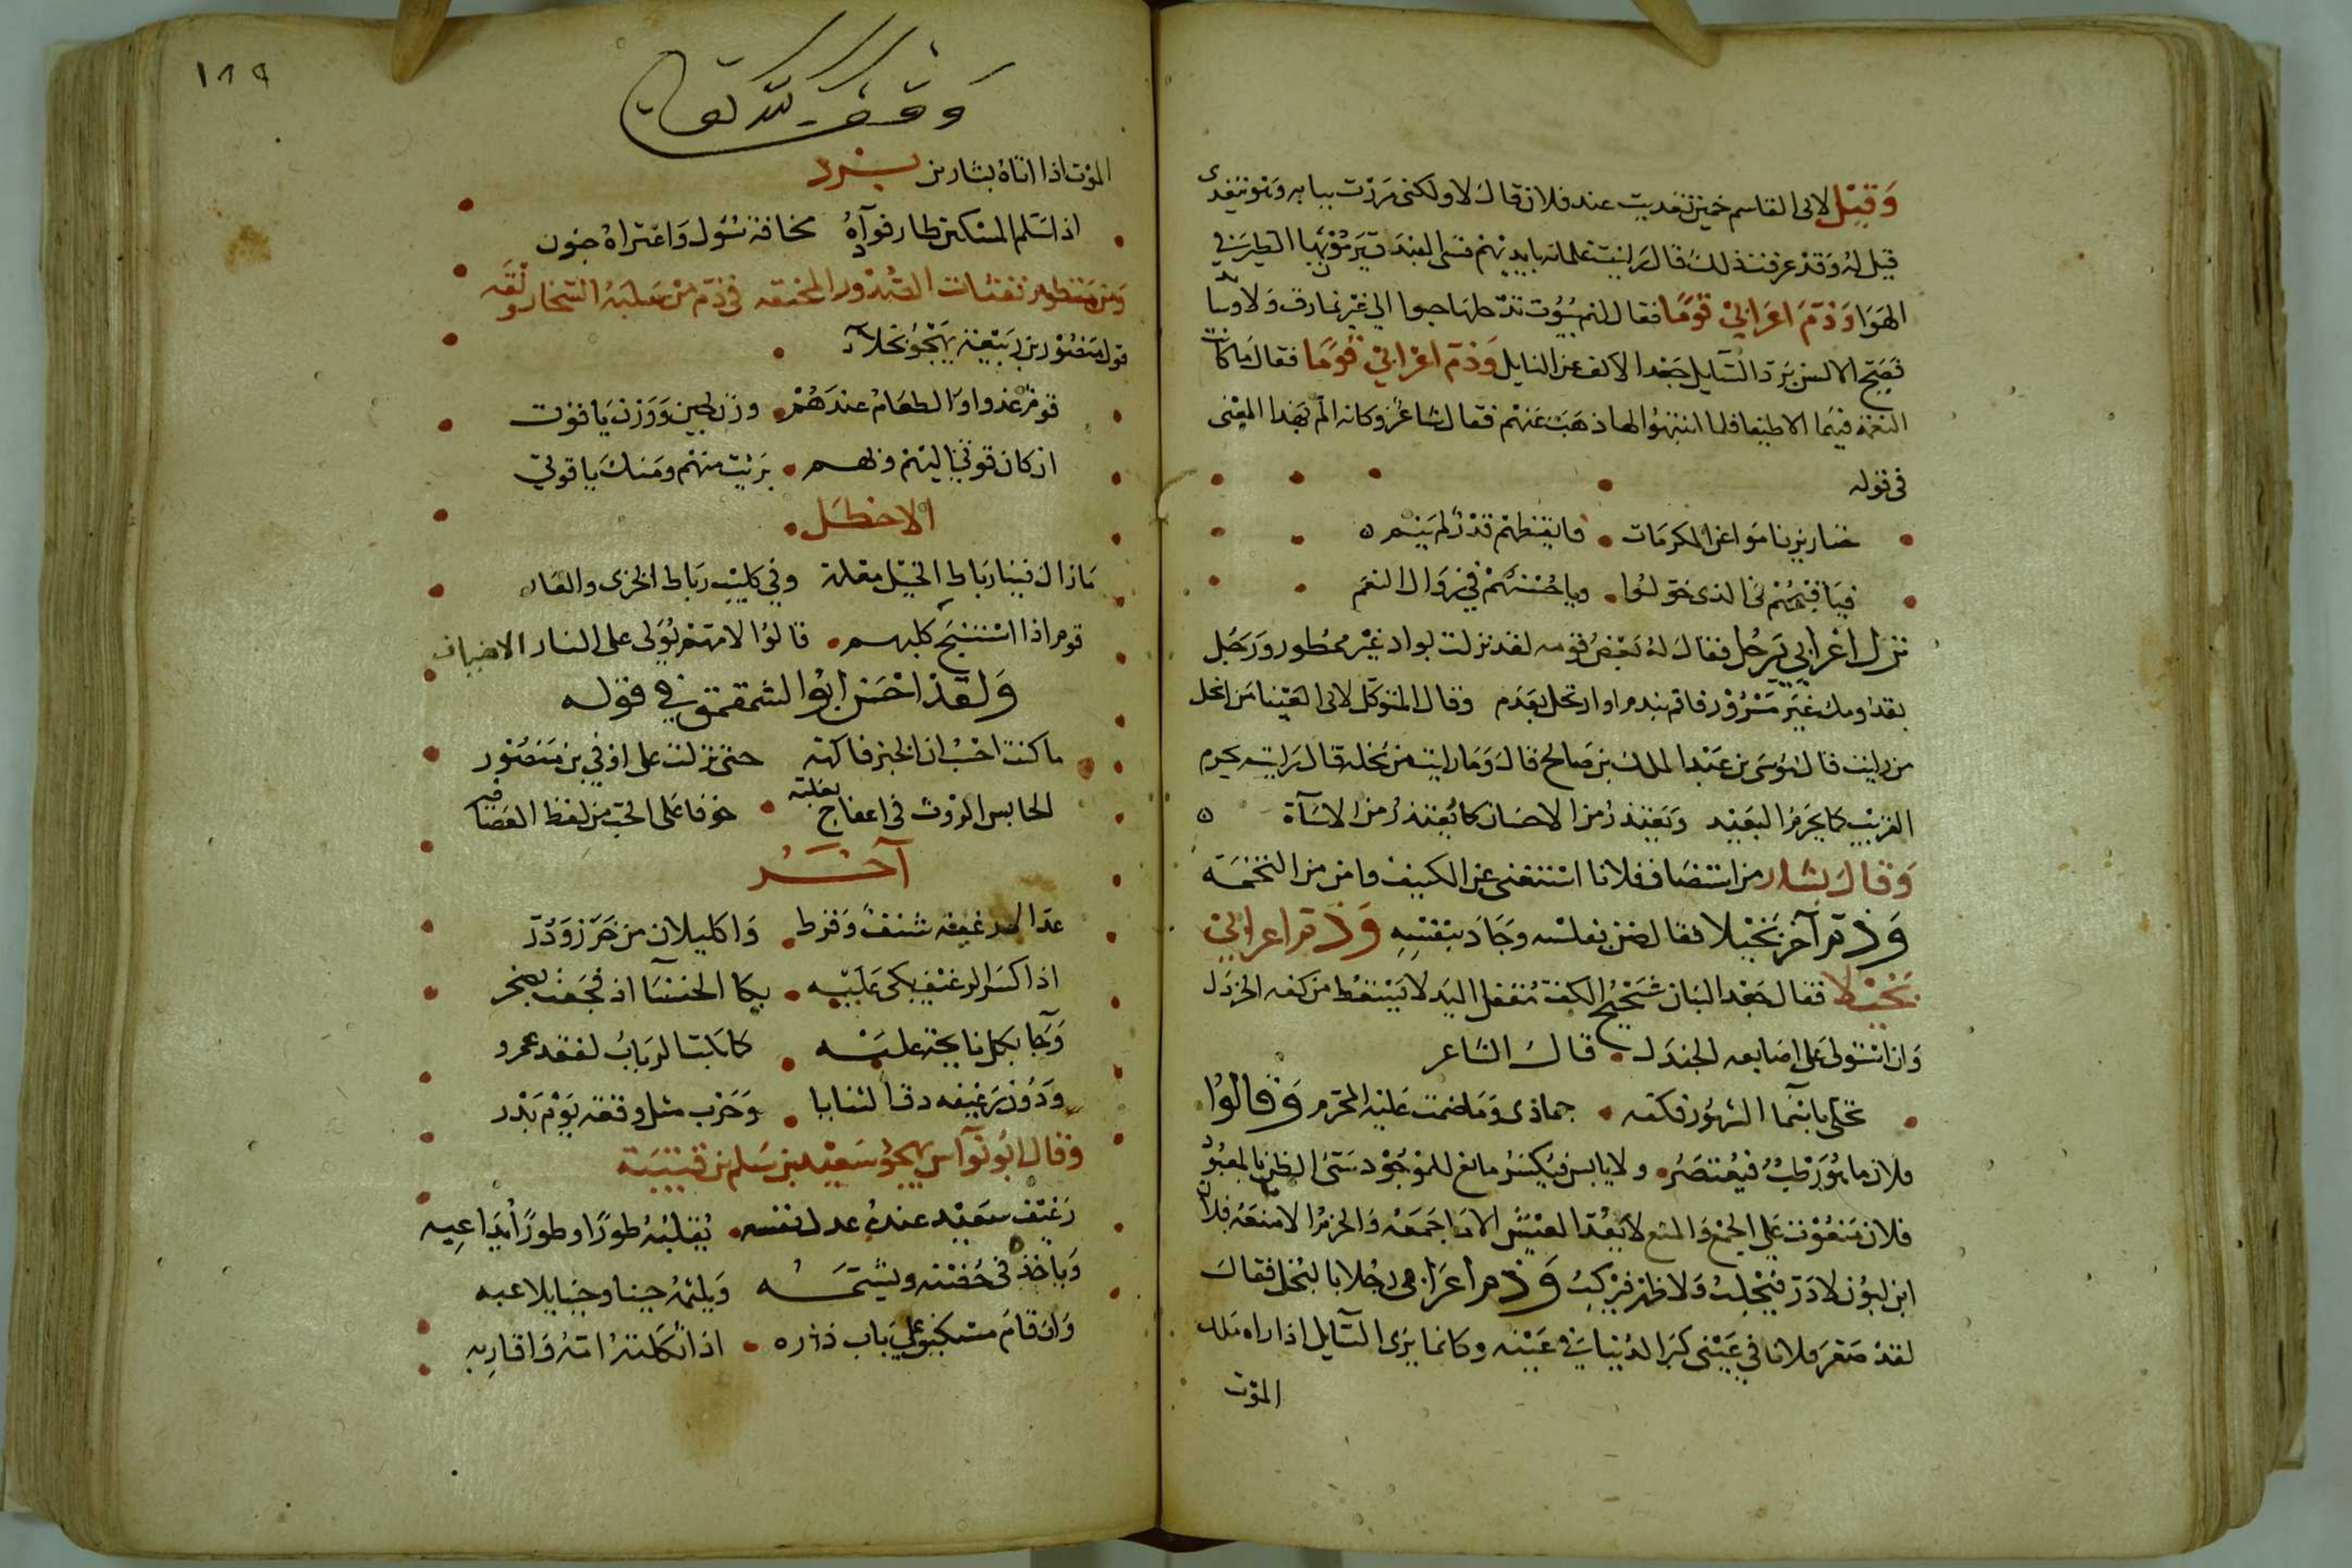 وَقيْل لابى القاسم خمين تغديت عند فلان قال لا ولكنى مررت ببابه وهو يتغدى
قيل له وقد عرفت ذلك قال رايت غلمانه بايديهم قسى البندق يرمون بها الطير فى
الهوا وَذم اعرابي قومًا فقال لهم بيوت تدخلها حبوا الي غير نمارق ولا وسايد
فصح الالسن برد السايل جعد الاكف عن النايل وَذم اعرابي قومًا فقال ما كانت
النعمة فيهم الا طيفا فلما انتبهوا لها ذهبت عنهم فقال شاعر وكانه الم بهذا المعنى
فى قوله
خنازير ناموا عن المكرمات فايقظهم قدر لم ينم
فيا قبحهم في الذى خولوا ويا حسنهم في زوال النعم
نزل اعرابي برجل فقال له بعض قومه لقد نزلت بواد غير ممطور ورجل
بقدومك غير مسرور فاقم بندم او ارتحل بعدم وقال المتوكل لابى العينا من ابخل
من رايت قال موسى بن عبد الملك بن صالح قال وما رايت من بخله قال رايته يحرم
القريب كما يحرم البعيد ويعتذر من الاحسان كما يعتذر من الاسآة
وَقال بشار من استضاف فلانا استغنى عن الكنيف وامن من التخمة
وَذم آخر بخيلا فقال ضن بفلسه وجاد بنفسه وَذم اعرابي
بخيلا فقال جعد البنان شحيح الكف مقفل اليد لا يسقط من كفه الخردل
وان استولى على اصابعه الجندل قال الشاعر
تحلى باسما الشهور فكفه جمادى وما ضمت عليه المحرم وَقالوا
فلان ما هو رطب فيعتصر ولا يابس فيكسر مانع للموجود سئ الظن بالمعبود
فلان منعوت على الجمع والمنع لا يعد العيش الا ما جمعه والحزم الا ما منعه فلان
ابن لبون لا در فيحلب ولا ظهر فيركب وَذم اعرابي رجلا بالبخل فقال
لقد صغر فلانا في عينى كبر الدنيا في عينه وكانما يرى السايل اذا راه ملك
الموت
١٨٩
وَقف لله تعالى
الموت اذا اتاه بشار بن برد
اذا سلم المسكين طار فوآده مخافة سول واعتراه جنون
وَمن منظوم نفثات الصدور المحنقه في ذم من
قول منصور بن ربيعة يهجو بخلآء
قوم غدوا والطعام عندهم وزن لجين ووزن ياقوت
ان كان قوتي اليهم ولهم برئيت منهم ومنك يا قوتي
الاخطل
ما زال فينا رباط الخيل معلمة وفي كليب رباط الخزى والعار
قوم اذا استنبح الاضياف كلبهم قالوا لامهم بولى على النار
وَلقد احسن ابو الشمقمق في قوله
ما كنت احسب ان الخبز فاكهة حتى نزلت على اوفي بن منصور
الحابس الروث فى اعفاج بغلته خوفا على الحب من لقط العصافير
آخر
غدا لرغيفه شنف وقرط وَاكليلان من خرز ودر
اذا كسر الرغيف بكى عليه بكا الخنسآ اذ فجعت بصخر
كما بكت الرباب لفقد عمرو
ودون رغيفه دق الثنايا وحرب مثل وقعة يوم بدر
وقال ابو نوآس يهجو سعيد بن سلم بن قتيبة
رغيف سعيد عنده عدل نفسه يقلبه طورًا وطورًا يداعبه
وياخذه في حضنه ويشمه ويلثمه حينا وحينا يلاعبه
وان قام مسكين على باب داره اذا ثكلته امه واقاربه